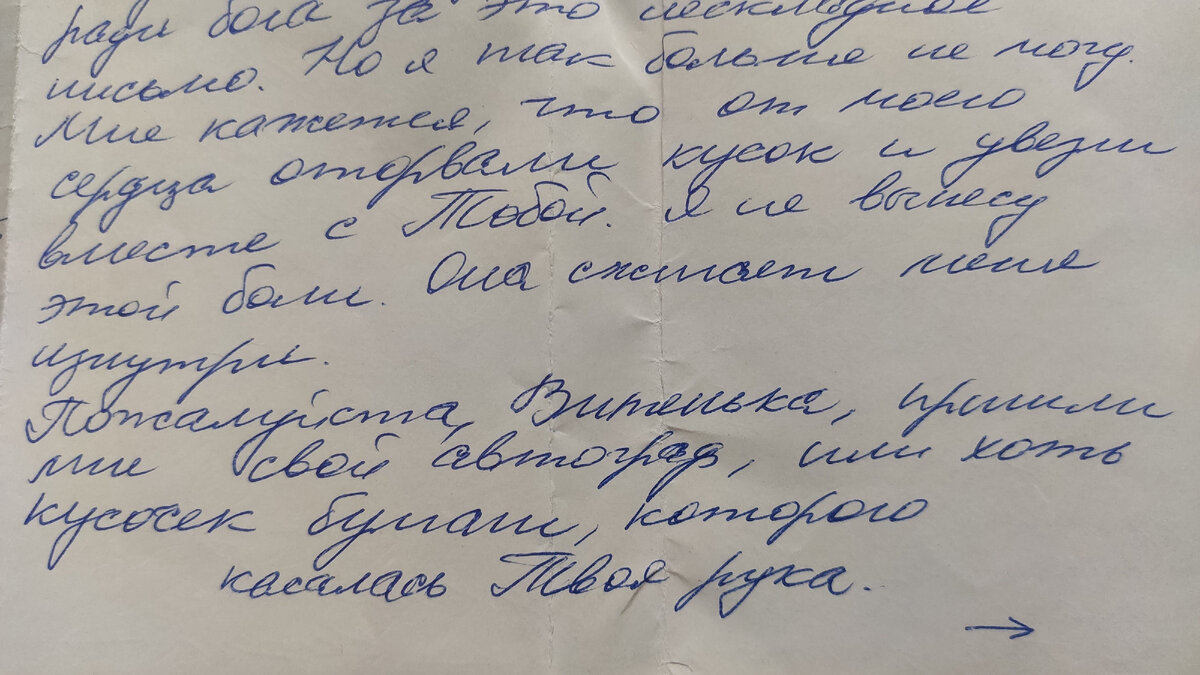 ради бога за это нескладное
письмо. Но я так больше не могу.
Мне кажется, что от моего
сердца оторвали кусок и увезли
вместе с Тобой. Я не вынесу
этой боли. Она сжигает меня
изнутри.
Пожалуйста, Витенька, пришли
мне свой автограф, или хоть
кусочек бумаги, которого
касалась Твоя рука.
→